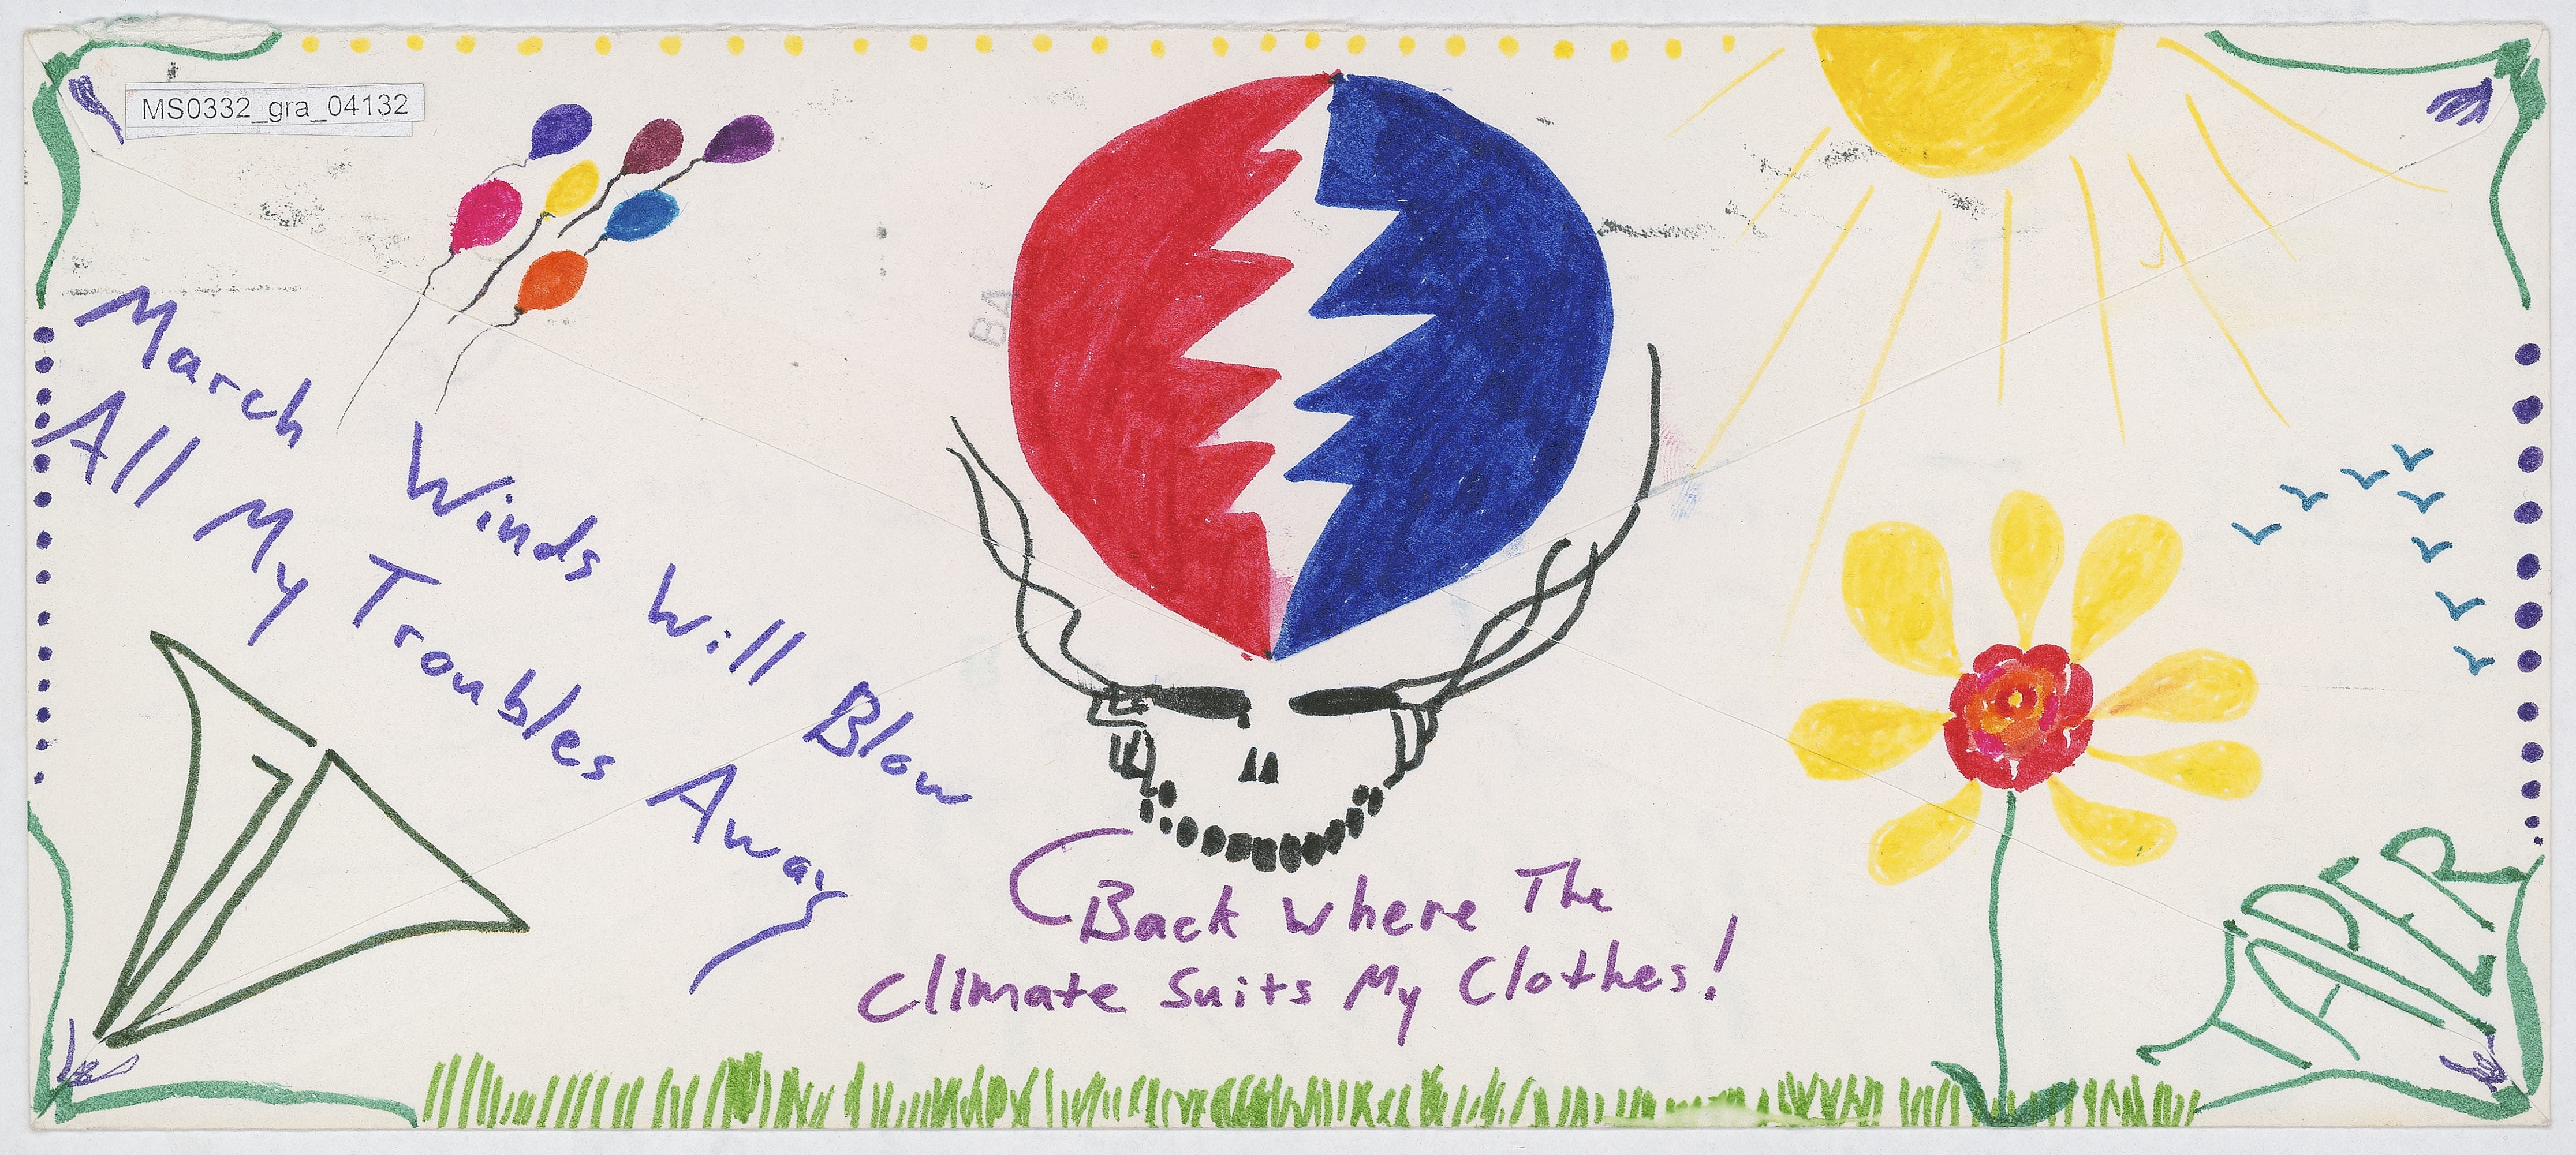 MS0332_gra_04132
BA
March Winds Will Blow
All My Troubles Away
Back Where The
Climate Suits My Clothes!
TAPER